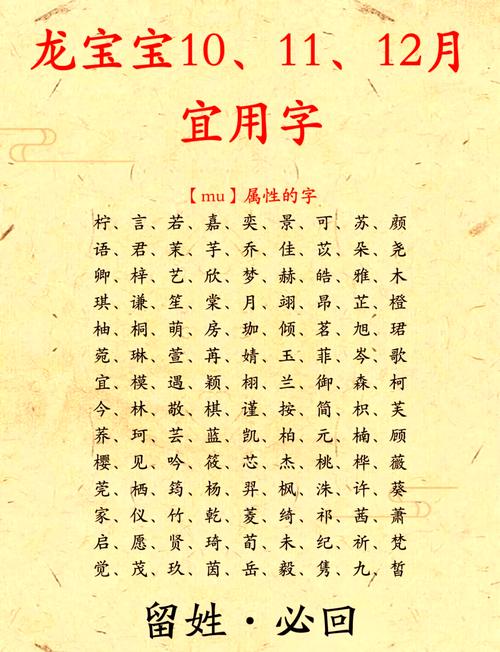 龙宝宝10、11、12月
宜用字
【mu】属性的字
柠、言、若、嘉、奕、景、可、苏、颜
语、君、茉、芋、乔、佳、苡、朵、尧
卿、梓、艺、欣、梦、赫、皓、雅、木
琪、谦、笙、棠、月、翊、昂、芷、橙
柚、桐、萌、房、珈、倾、茗、旭、珺
菀、琳、萱、苒、婧、玉、菲、岑、歌
宜、模、遇、颖、栩、兰、御、森、柯
今、林、敬、棋、谨、按、简、枳、芙
荞、珂、芸、蓝、凯、柏、元、楠、顾
樱、见、吟、筱、芯、杰、桃、桦、薇
莞、栖、筠、杨、羿、枫、洙、许、葵
家、仪、竹、乾、菱、绮、祁、茜、萧
启、愿、贤、琦、荀、未、纪、祈、梵
觉、茂、玖、茵、岳、毅、隽、九、皙
留姓·必回